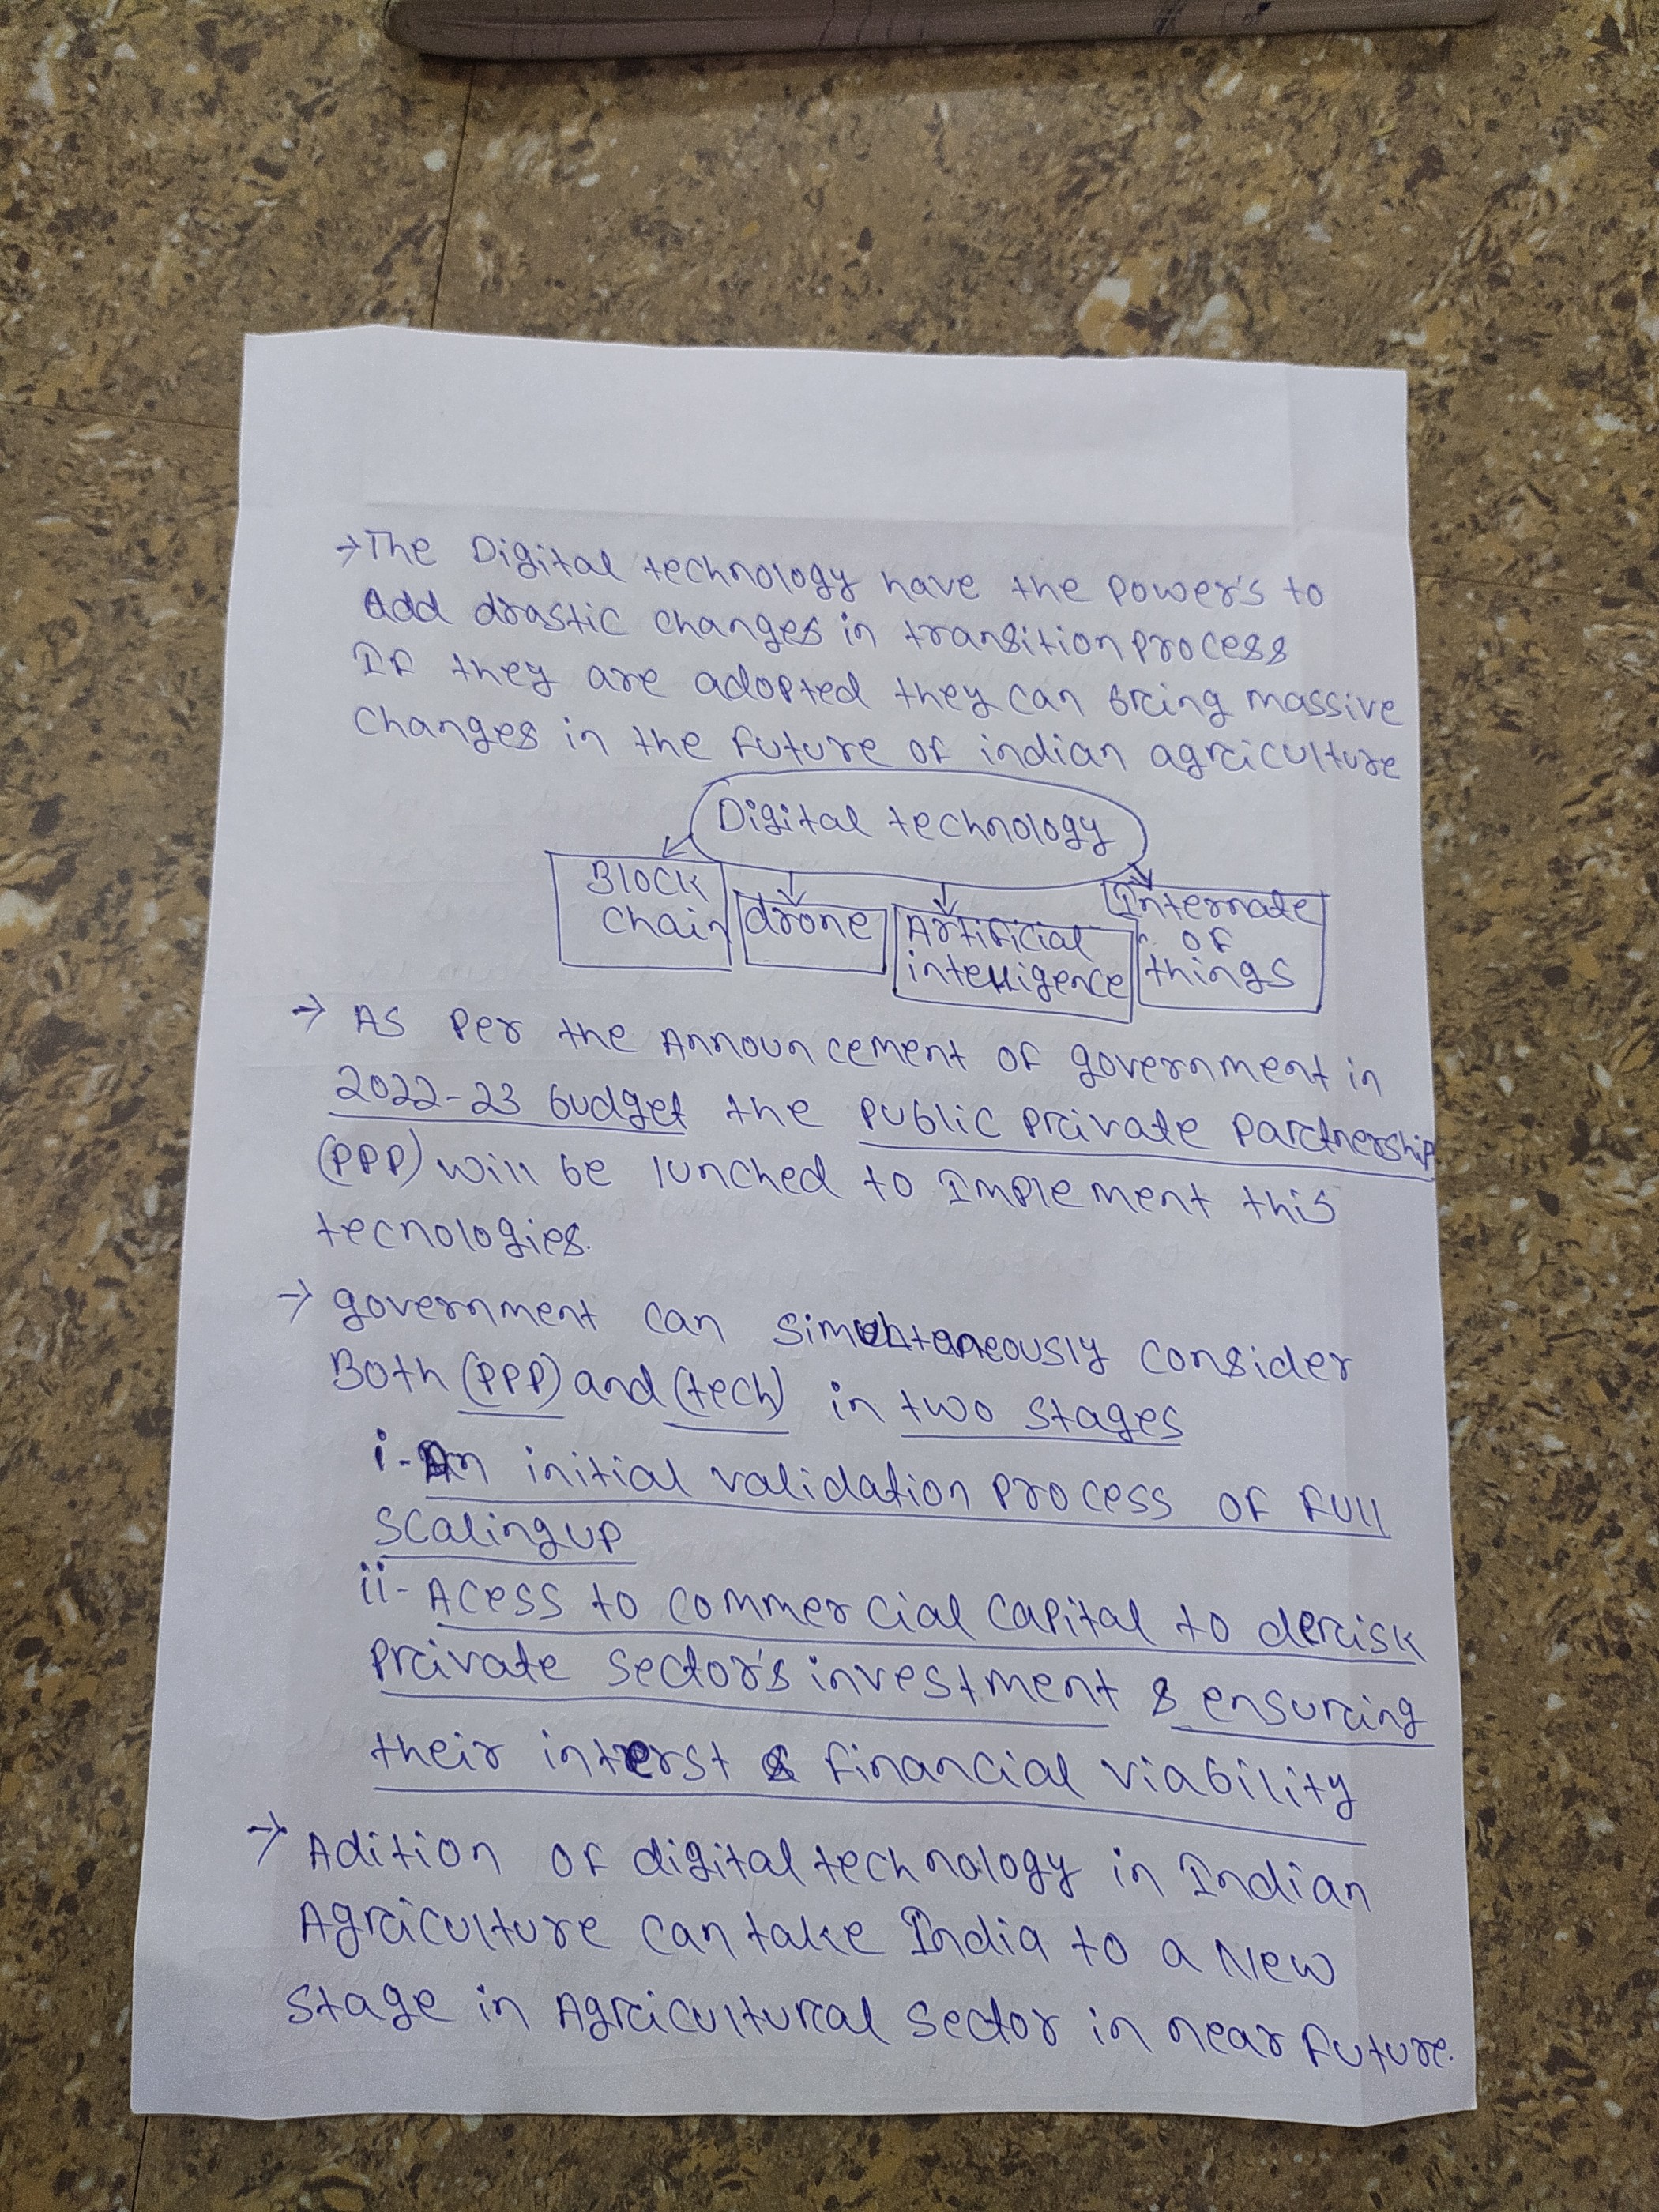 →The Digital technology have the power's to
Add drastic changes in transition process
If they are adopted they can bring massive
changes in the future of indian agriculture
Digital technology
Block
chain
drone
Artificial
intelligence
Internate
of
things
→ As per the Announcement of government in
2022-23 budget the public private partnership
(PPP) will be lunched to implement this
tecnologies.
→ government can simultaneously consider
Both (PPP) and (tech) in two stages
i-An initial validation process of full
scaling up
ii- Acess to commercial capital to derisk
private sector's investment & ensuring
their interst & financial viability
→ Adition of digital technology in Indian
Agriculture can take India to a New
stage in Agricultural sector in near future.